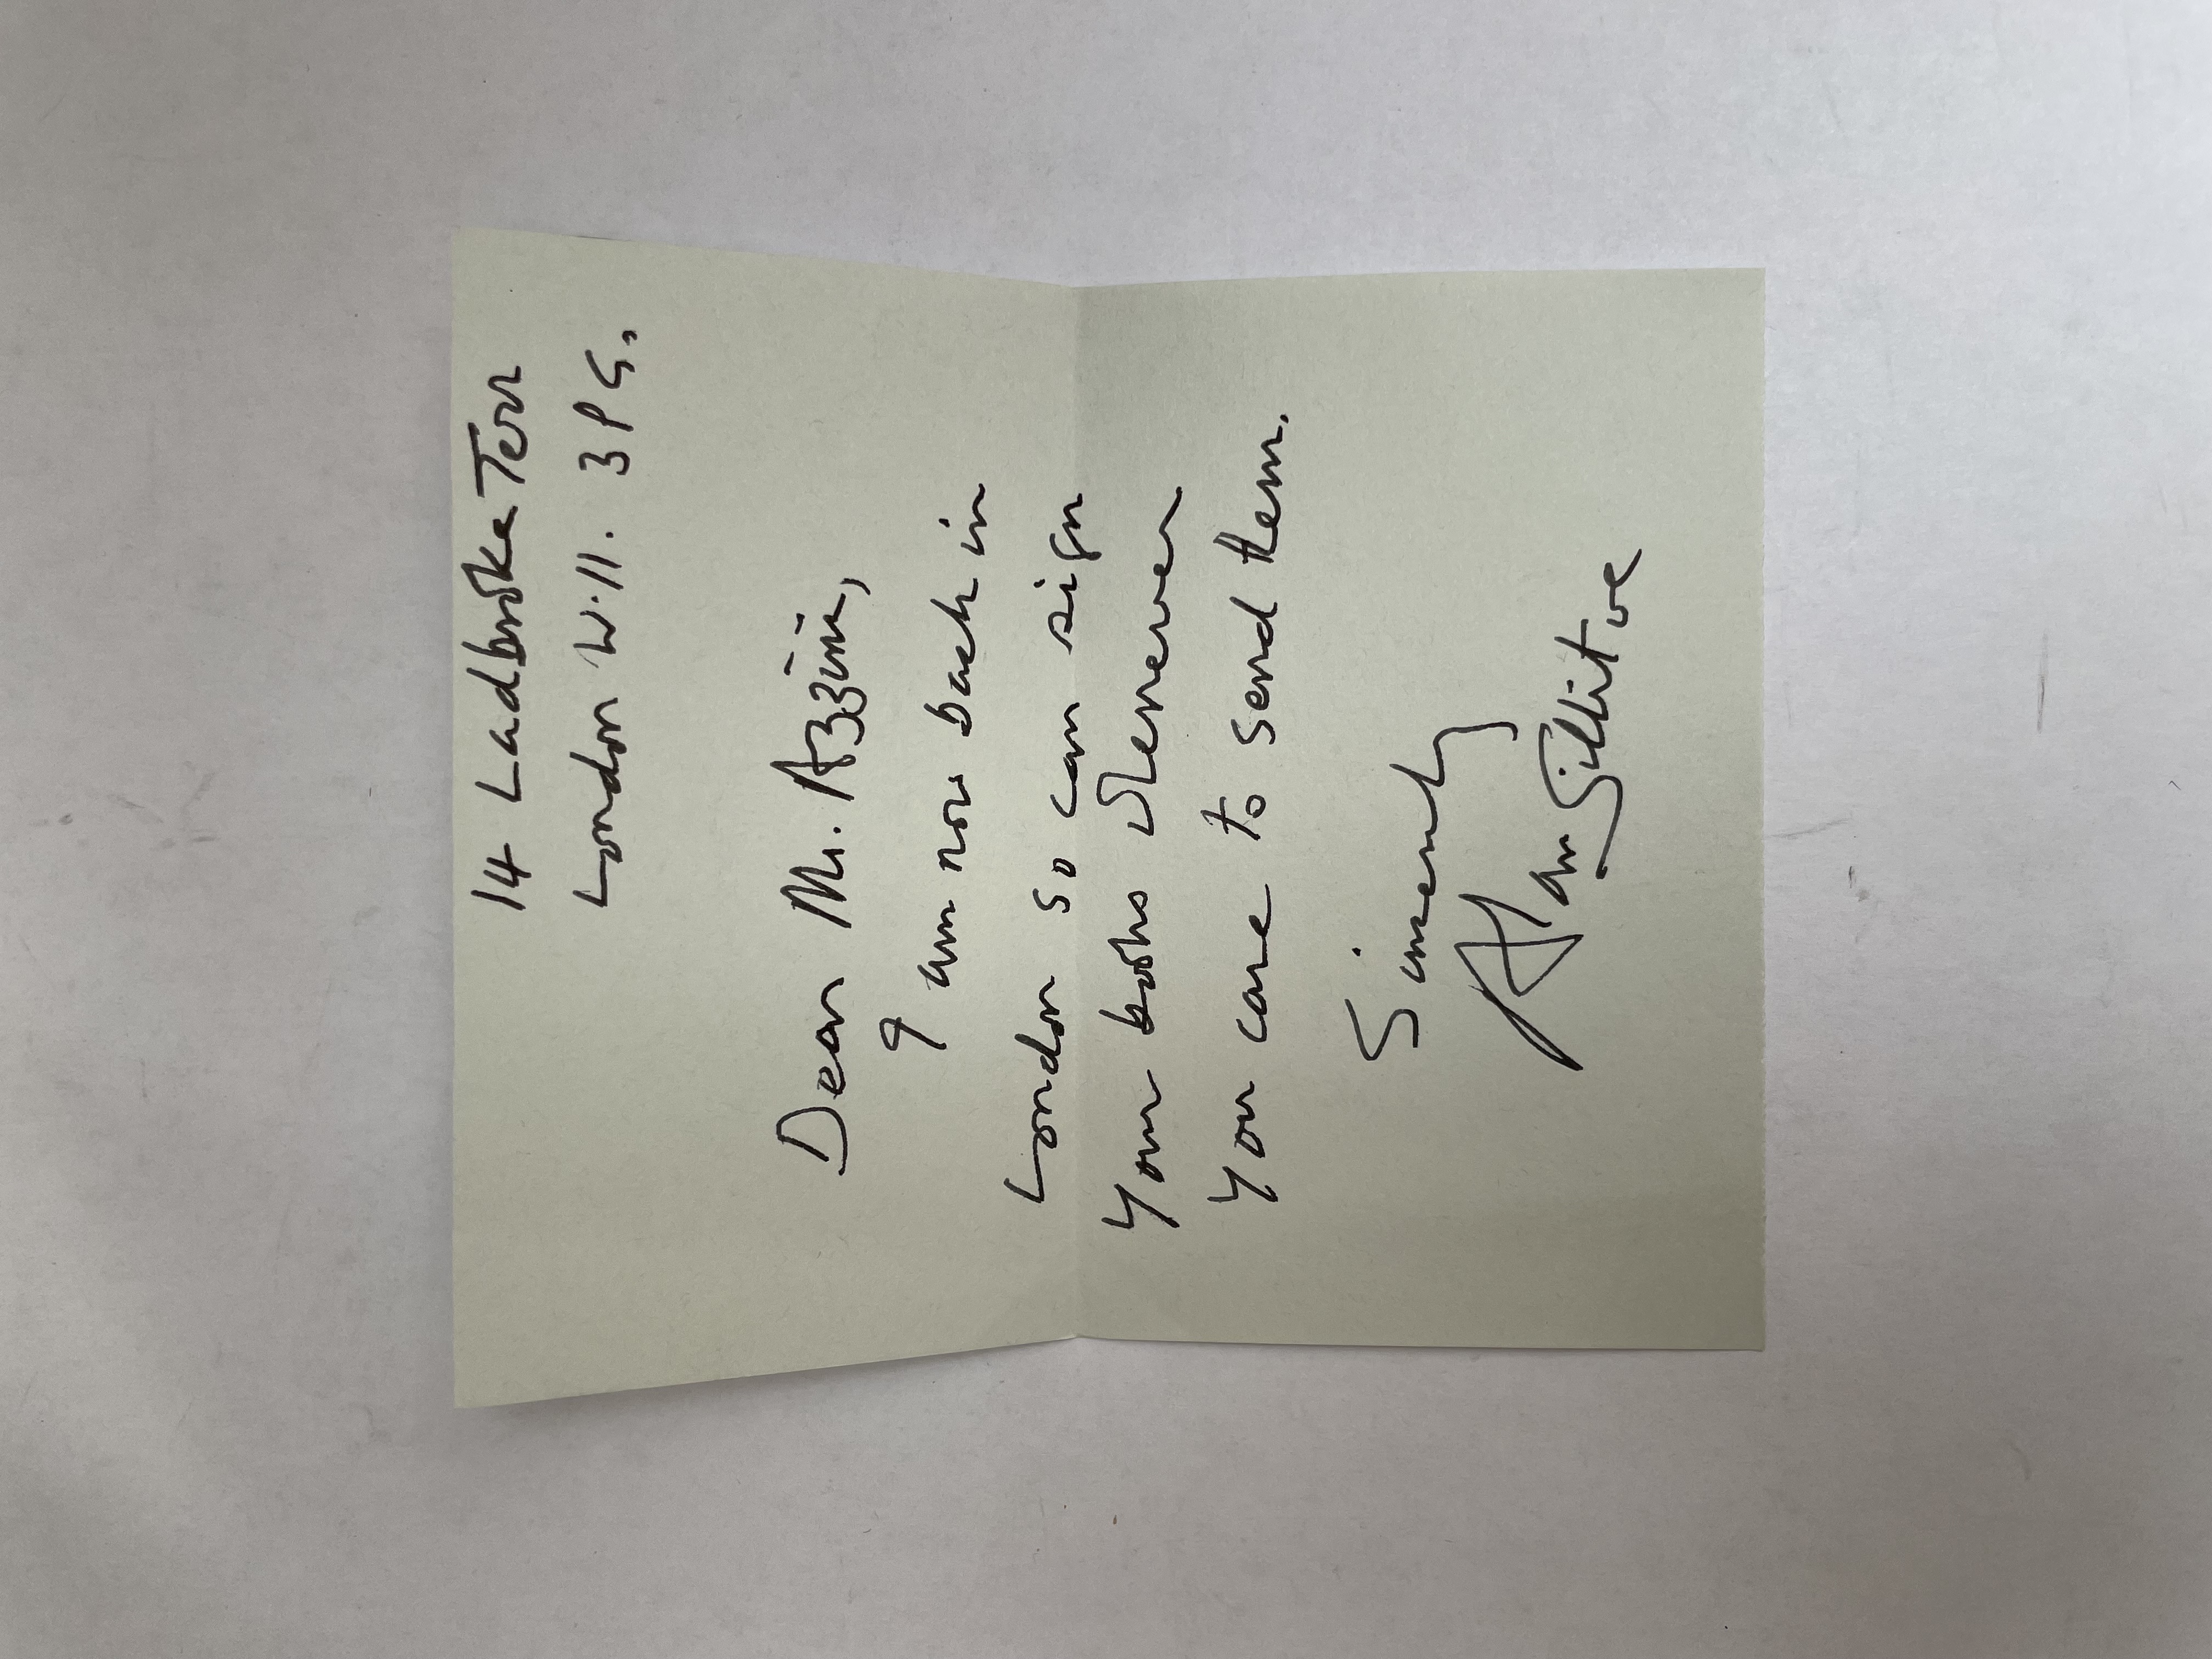 14 Ladbroke Terr
London W.11. 3PG.
Dear Mr. Azzimi,
I am now back in
London so can sign
your books whenever
you care to send them.
Sincerely
Alan Sillitoe